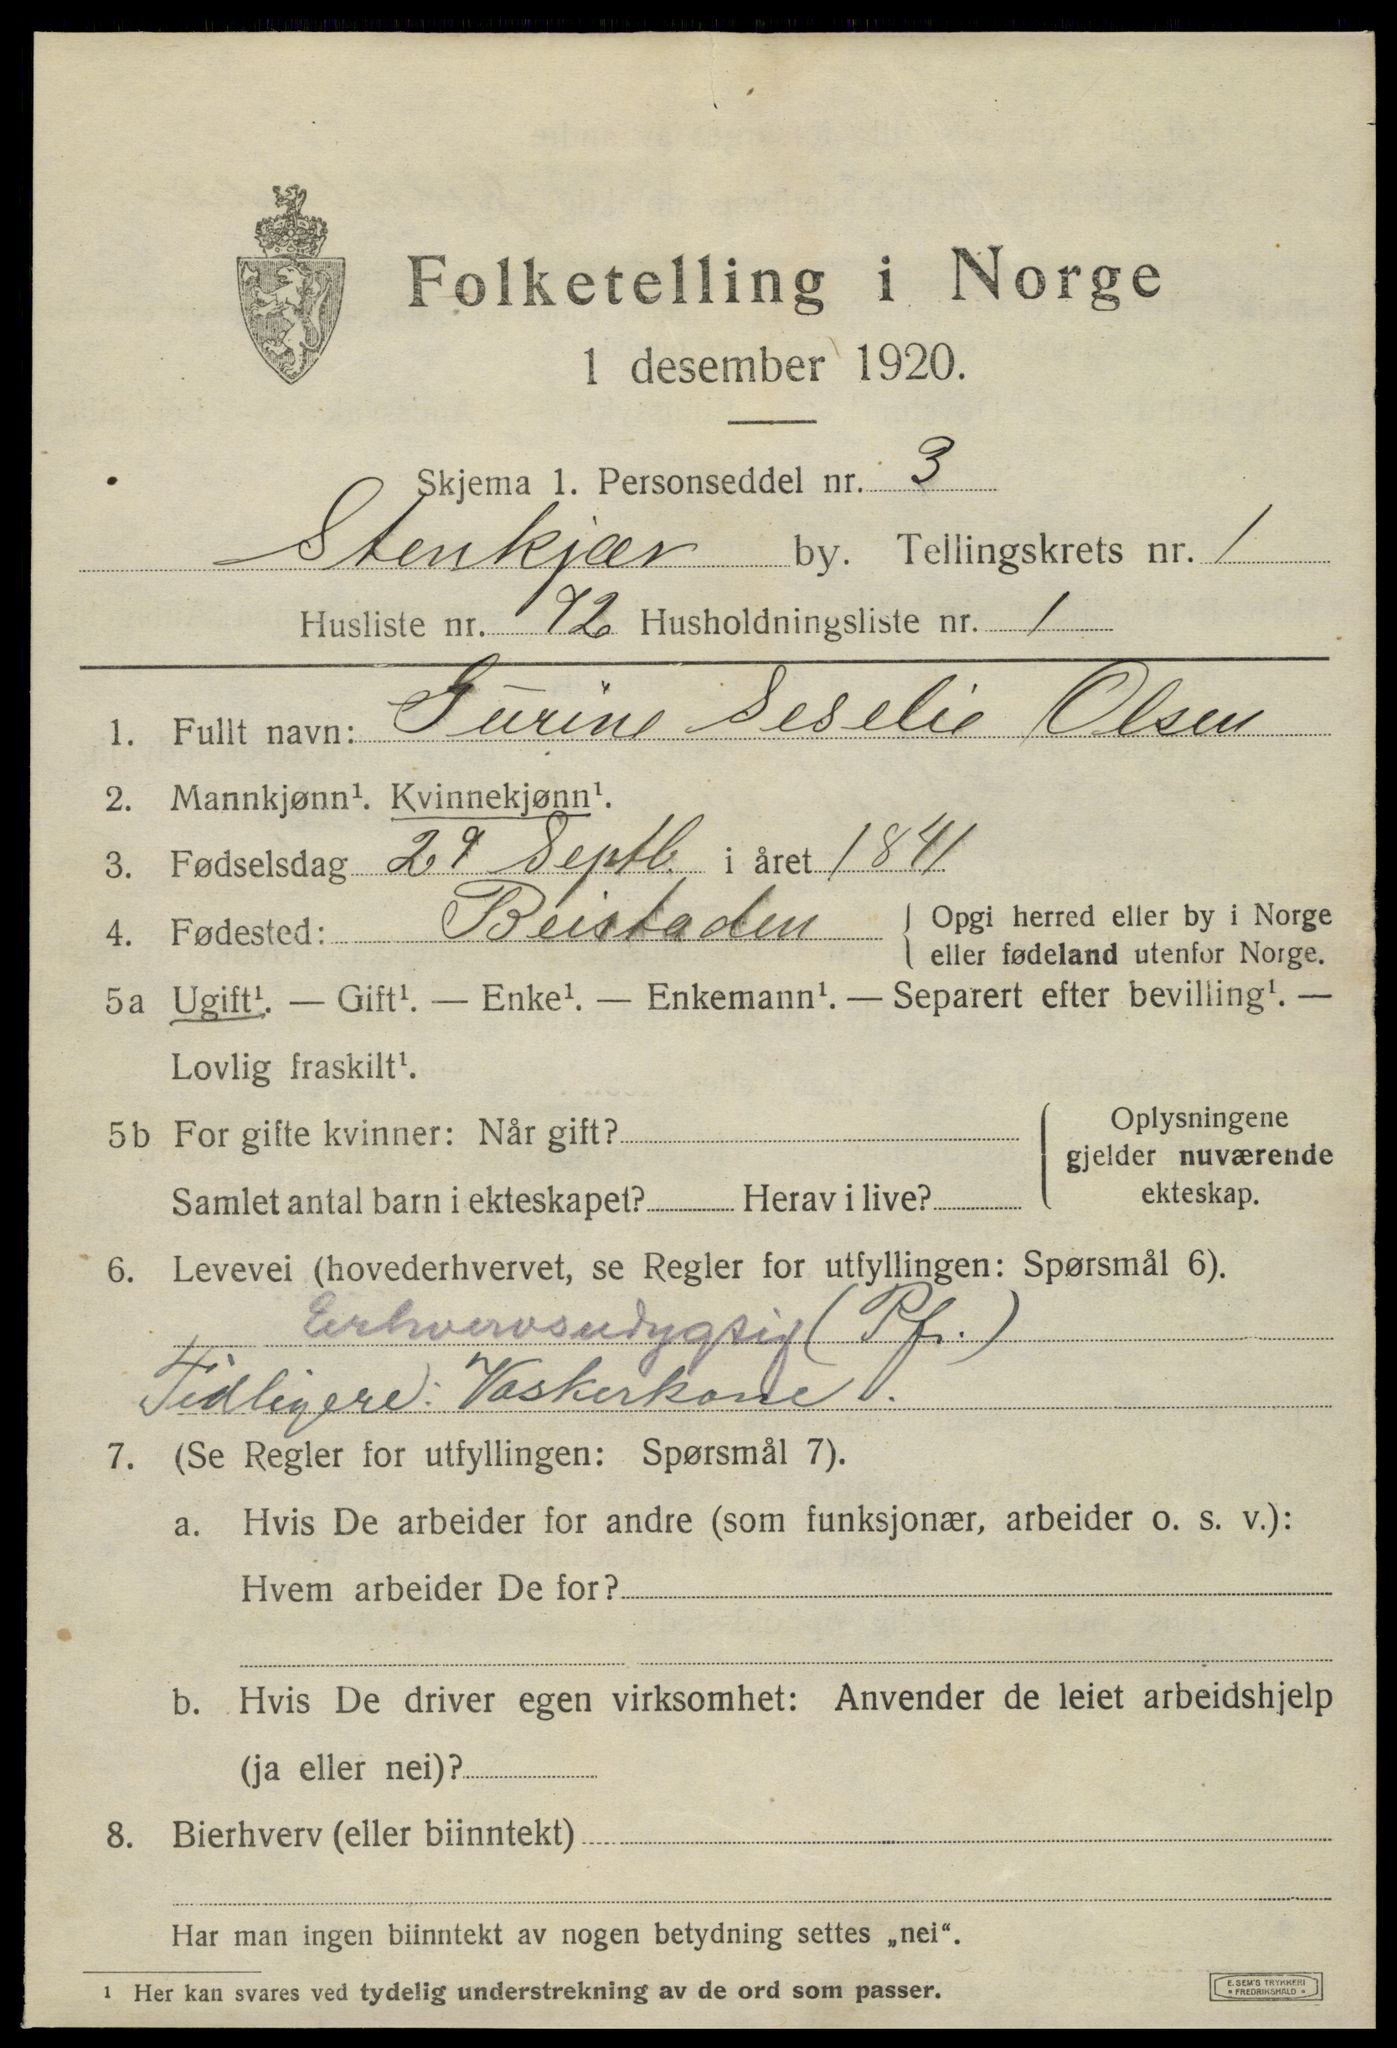 Folketelling i Norge
1 desember 1920.
Skjema 1. Personseddel nr. 3
Stenkjær by. Tellingskrets nr. 1
Husliste nr. 72 Husholdningsliste nr. 1
1. Fullt navn: Gurine Seselie Olsen
2. Mannkjønn¹. Kvinnekjønn¹.
3. Fødselsdag 29 Septb. i året 1841
4. Fødested: Beistaden { Opgi herred eller by i Norge
eller fødeland utenfor Norge.
5a Ugift¹. — Gift¹. — Enke¹. — Enkemann¹. — Separert efter bevilling¹. —
Lovlig fraskilt¹.
5b For gifte kvinner: Når gift? { Oplysningene
gjelder nuværende
Samlet antal barn i ekteskapet? Herav i live? ekteskap.
6. Levevei (hovederhvervet, se Regler for utfyllingen: Spørsmål 6).
Erhvervsudygtig (Pf.)
Tidligere: Vaskerkone.
7. (Se Regler for utfyllingen: Spørsmål 7).
a. Hvis De arbeider for andre (som funksjonær, arbeider o. s. v.):
Hvem arbeider De for?
b. Hvis De driver egen virksomhet: Anvender de leiet arbeidshjelp
(ja eller nei)?
8. Bierhverv (eller biinntekt)
Har man ingen biinntekt av nogen betydning settes „nei“.
¹ Her kan svares ved tydelig understrekning av de ord som passer.
E. SEM'S TRYKKERI
* FREDRIKSHALD *